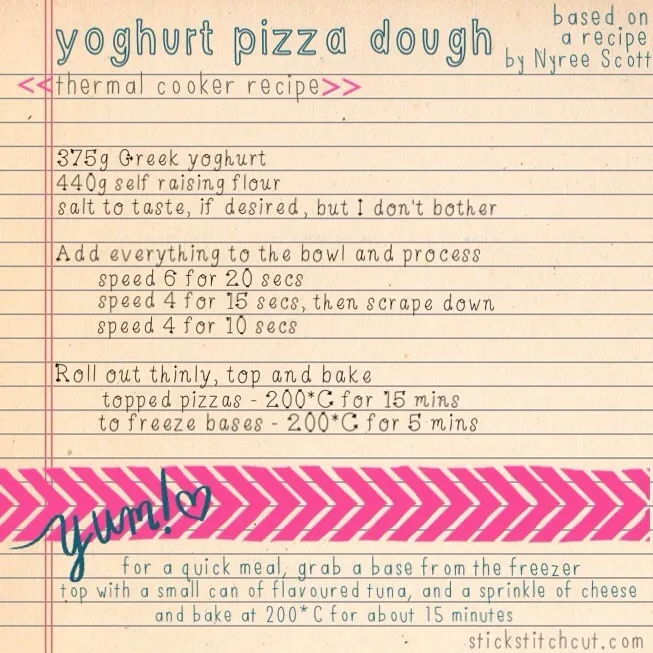 yoghurt pizza dough
based on
a recipe
by Nyree Scott
<<thermal cooker recipe>>
375g Greek yoghurt
440g self raising flour
salt to taste, if desired, but I don't bother
Add everything to the bowl and process
speed 6 for 20 secs
speed 4 for 15 secs, then scrape down
speed 4 for 10 secs
Roll out thinly, top and bake
topped pizzas - 200*C for 15 mins
to freeze bases - 200*C for 5 mins
yum!♡
for a quick meal, grab a base from the freezer
top with a small can of flavoured tuna, and a sprinkle of cheese
and bake at 200*C for about 15 minutes
stickstitchcut.com